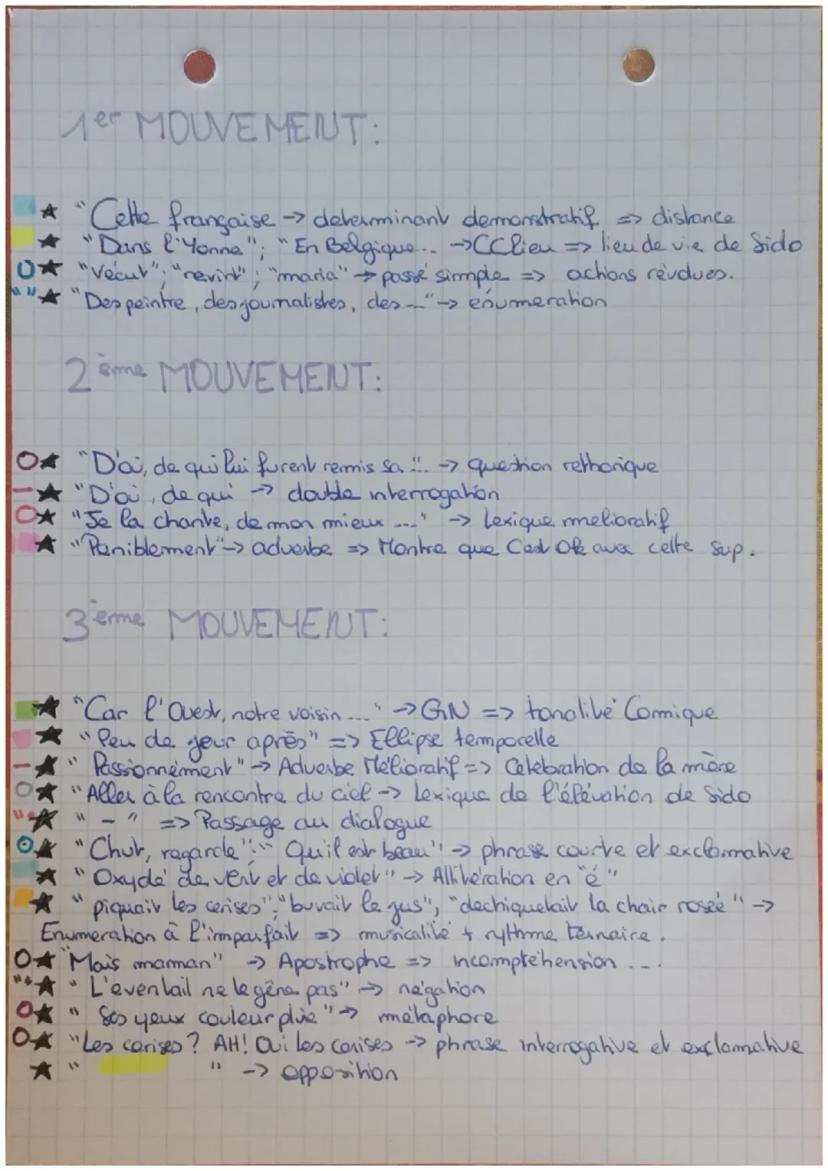 1er MOUVEMENT:
"Cette française -> determinant demonstratif => distance
"Dans l'Yonne"; "En Belgique.. -> CClieu => lieu de vie de Sido
"Vécut"; "revint"; "maria" -> passé simple => actions révolues.
"Des peintre, des journalistes, des ..." -> énumeration
2ème MOUVEMENT:
"D'où, de qui lui furent remis sa ... -> question rethorique
"D'où, de qui -> double interrogation
"Je la chante, de mon mieux ..." -> Lexique melioratif
"Peniblement" -> adverbe => Montre que C'est Ok avec cette sup.
3ème MOUVEMENT:
"Car l'Ouest, notre voisin ..." -> GN => tonalité Comique
"Peu de jour après" => Ellipse temporelle
"Passionnément" -> Adverbe Mélioratif => Célébration de la mère
"Aller à la rencontre du ciel -> Lexique de l'élévation de Sido
" - " => Passage au dialogue
"Chut, regarde"; "Qu'il est beau" -> phrase courte et exclamative
"Oxydé de vert et de violet" -> Allitération en "é"
"piquait les cerises"; "buvait le jus", "dechiquetait la chair rosée" ->
Enumeration à l'imparfait => musicalité + rythme ternaire.
"Mais maman" -> Apostrophe => incompréhension ...
"L'eventail ne le gêna pas" -> négation
"Ses yeux couleur pluie" -> métaphore
"Les cerises ? AH! Oui les cerises -> phrase interrogative et exclamative
" " -> opposition